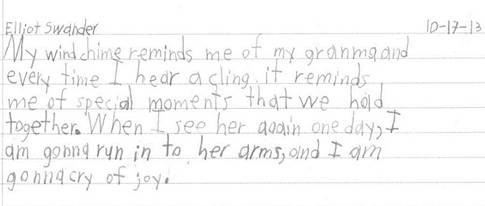 Elliot Swander 10-17-13
My windchime reminds me of my granma and
every time I hear a cling it reminds
me of special moments that we had
together. When I see her again one day, I
am gonna run in to her arms, and I am
gonna cry of joy.